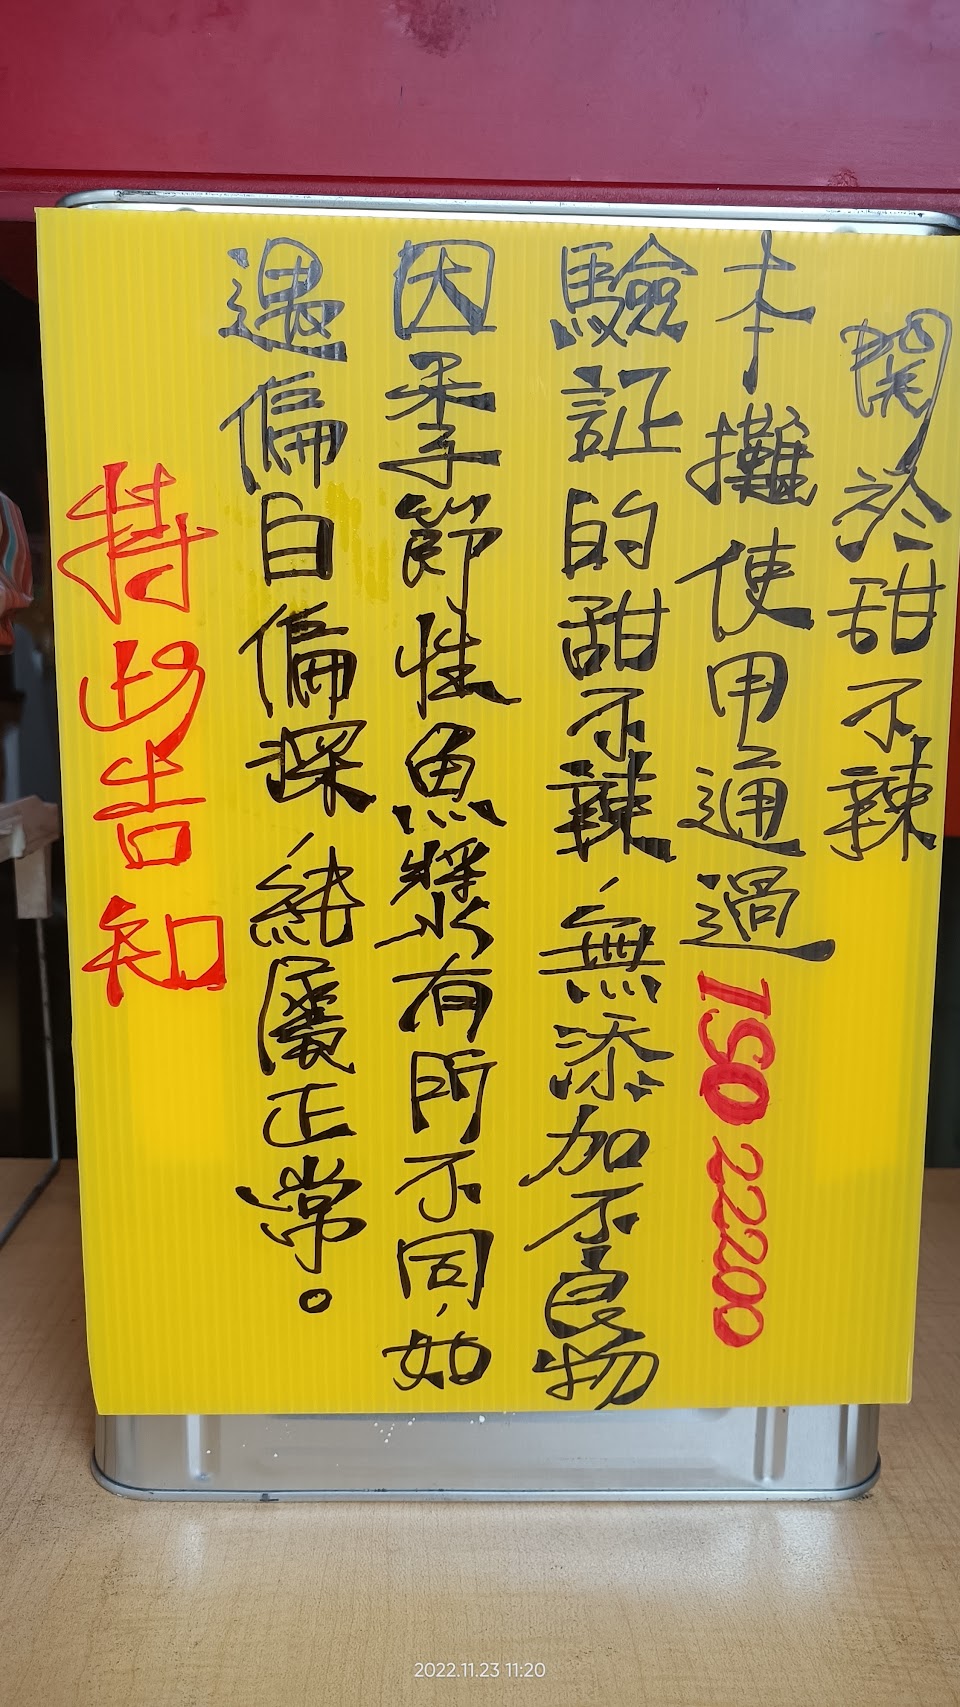 関於甜不辣
本攤使用通過ISO 22200
驗証的甜不辣、無添加不良物
因季節性魚漿有所不同,如
遇偏白偏深、純屬正常。
特此告知
2022.11.23 11:20